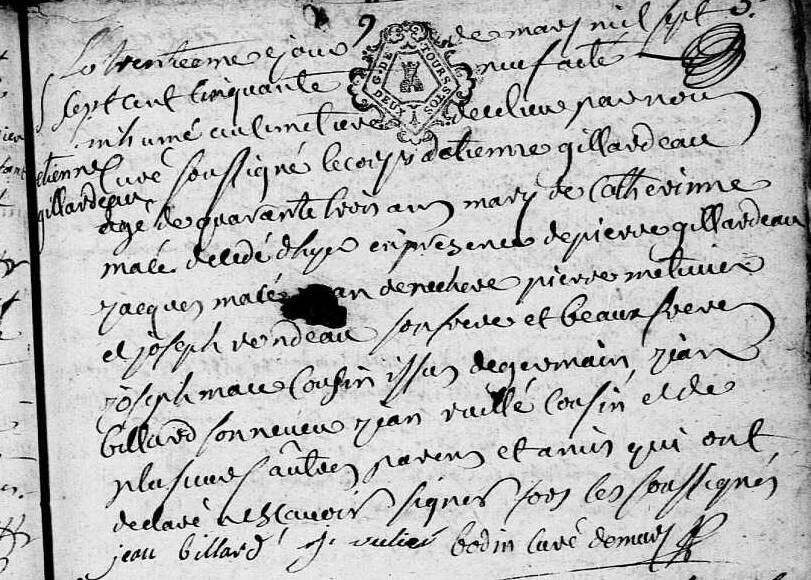 Le trentieme jour de mars mil sept
sept cent cinquante neuf a été
inhumé au cimetiere de ce lieu par nous
curé soussigné le corps d'etienne gillardeau
etienne
gillardeau
agé de quarante trois ans mary de Catherinne
macé decedé d'hyer en presence de pierre gillardeau
jacques macé jean pierre metivier
et joseph rondeau son frere et beaux freres
joseph macé Cousin issus de germain, jean
billard son neveu jean Cousin et de
plusieurs autres parens et amis qui ont
declaré ne scavoir signer fors les soussignés
jean billard bodin curé de
G. DE TOURS
DEUX SOLS